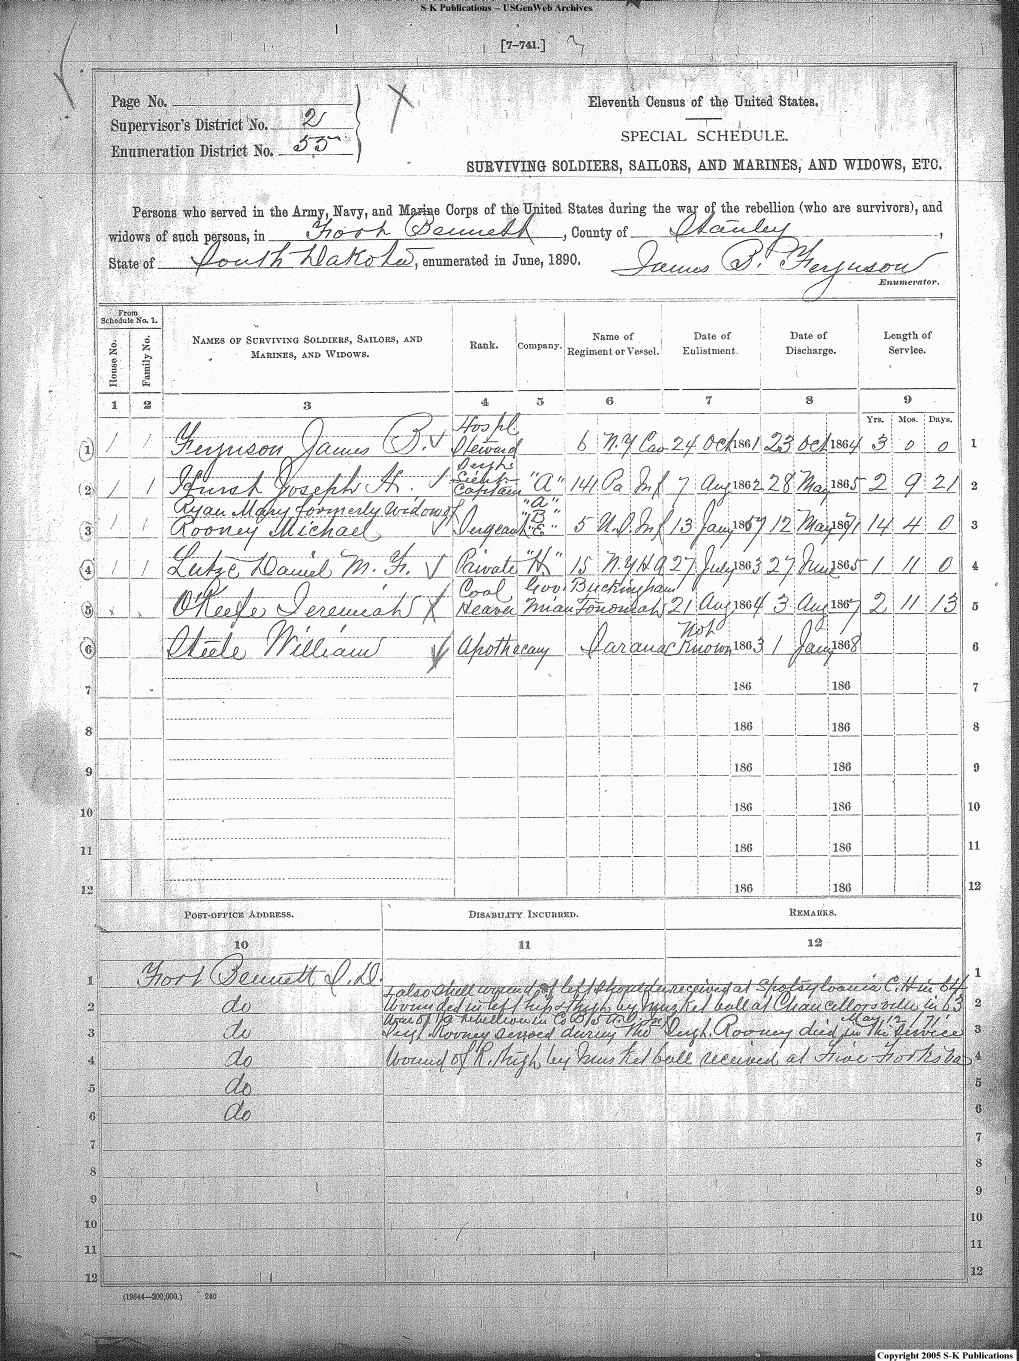 S-K Publications – USGenWeb Archives
[7-741.]
Page No.
Supervisor's District No. 2
Enumeration District No. 55
Eleventh Census of the United States.
SPECIAL SCHEDULE.
SURVIVING SOLDIERS, SAILORS, AND MARINES, AND WIDOWS, ETC.
Persons who served in the Army, Navy, and Marine Corps of the United States during the war of the rebellion (who are survivors), and
widows of such persons, in Fort Bennett, County of Stanley,
State of South Dakota, enumerated in June, 1890. James B. Ferguson
Enumerator.
From Schedule No. 1.
House No. Family No. NAMES OF SURVIVING SOLDIERS, SAILORS, AND MARINES, AND WIDOWS. Rank. Company. Name of Regiment or Vessel. Date of Enlistment. Date of Discharge. Length of Service.
1 2 3 4 5 6 7 8 9
Yrs. Mos. Days.
1 1 1 Ferguson James B. Hospl Steward 6 N.Y Cav 24 Oct 1861 23 Oct 1864 3 0 0 1
2 1 1 Hurst Joseph H. Captain "A" 141 Pa Inf 7 Aug 1862 28 May 1865 2 9 21 2
Ryan Mary formerly Widow of "A"
3 1 1 Rooney Michael Sergeant "B" "E" 5 U.S. Inf 13 Jany 1857 12 May 1871 14 4 0 3
4 1 1 Lutze Daniel M. F. Private "H" 15 N.Y H A 27 July 1863 27 June 1865 1 11 0 4
Coal Gov. Buckingham
5 O'Keefe Jeremiah Heaver 21 Aug 1864 3 Aug 1867 2 11 13 5
Not
6 Steele William Apothecary Saranac Known 1863 1 Jany 1868 6
7 186 186 7
8 186 186 8
9 186 186 9
10 186 186 10
11 186 186 11
12 186 186 12
POST-OFFICE ADDRESS. DISABILITY INCURRED. REMARKS.
10 11 12
1 Fort Bennett S.D. 1
& also Shell wound of left shoulder received at Spotsylvania C.H in 64
2 do Wounded in left hip & thigh by musket ball at Chancellorsville in 63 2
May 12/71
3 do Sergt Rooney served during The Sergt. Rooney died in The Service 3
4 do Wound of R. thigh by Musket ball received at Five Forks Va 4
5 do 5
6 do 6
7 7
8 8
9 9
10 10
11 11
12 12
(19644—200,000.) 240
Copyright 2005 S-K Publications